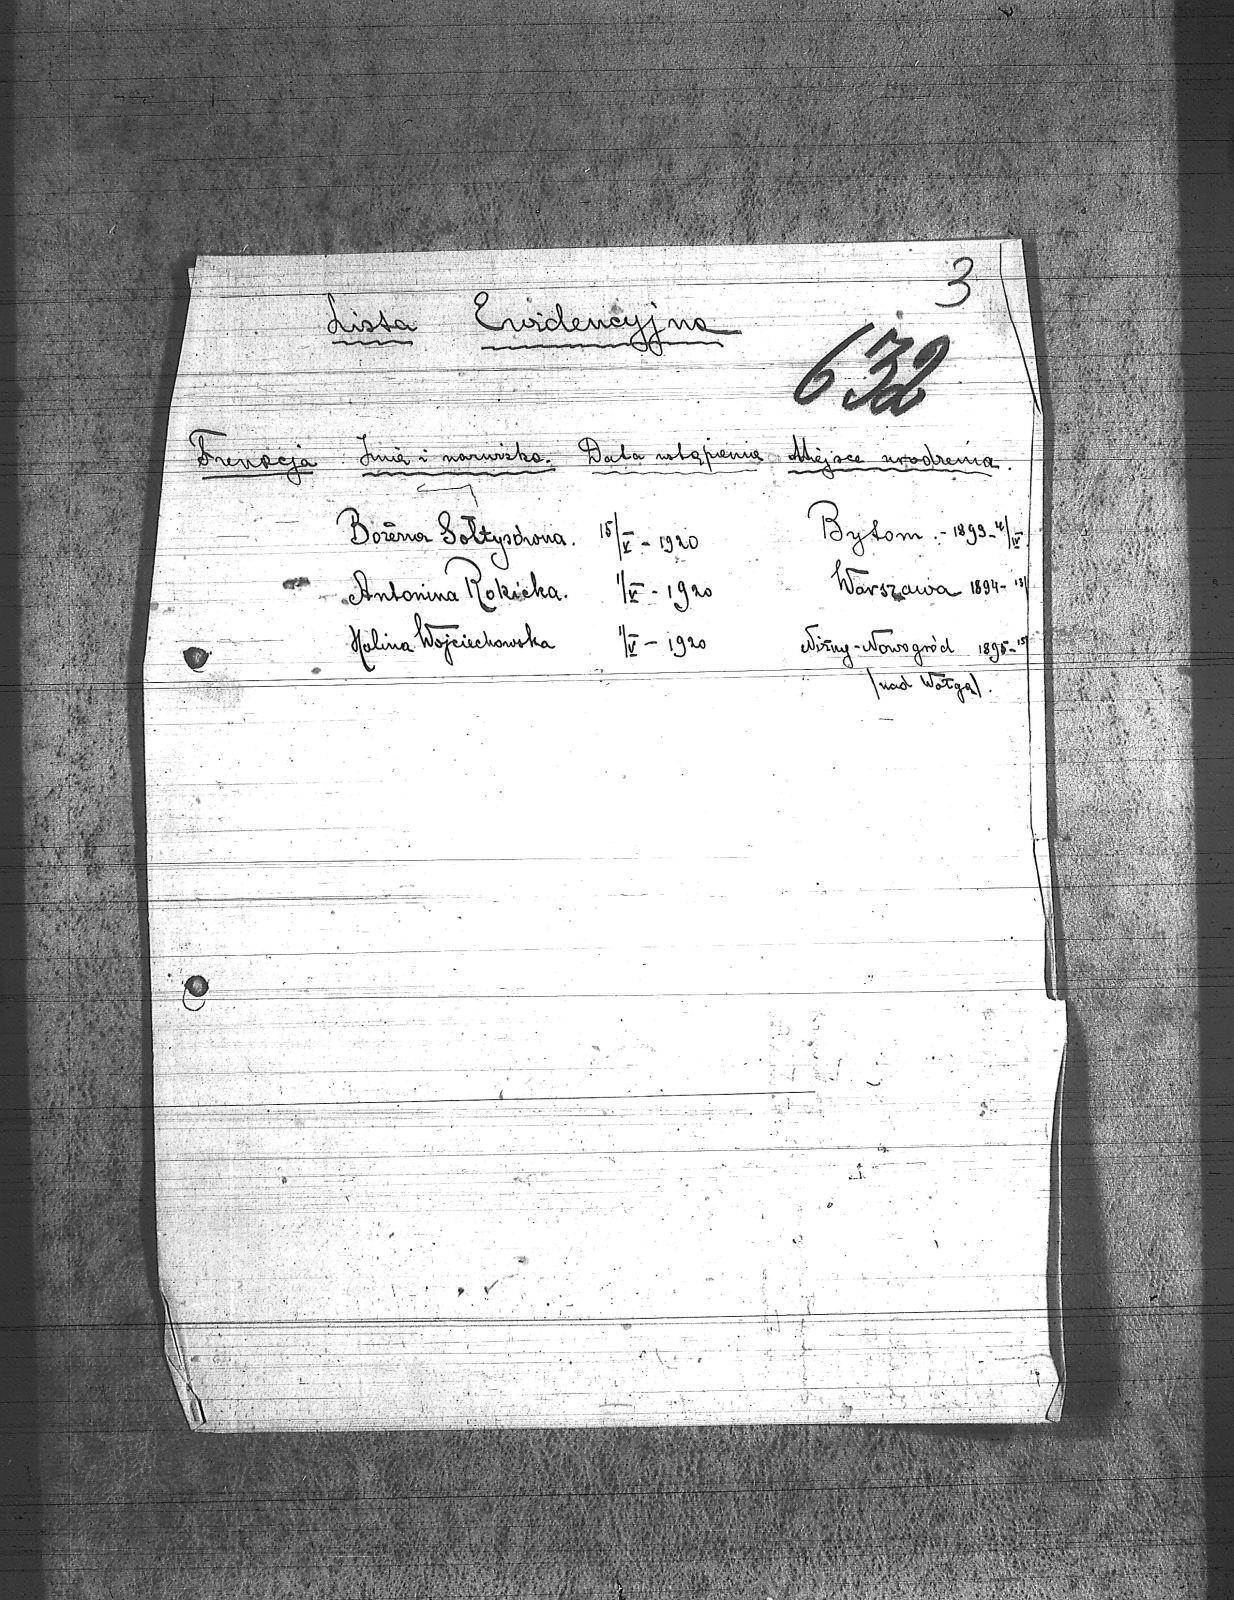 3
Lista Ewidencyjna
632
Imię i nazwisko. Data wstąpienia Miejsce urodzenia.
Bożena Sołtysówna. 15/V - 1920 Bytom. - 1899 - 4/IV.
Antonina Rokicka. 1/V - 1920 Warszawa 1894 - 13/
Halina Wojciechowska 1/V - 1920 Niżny-Nowogród 1895 - 15/
/nad Wołgą/.